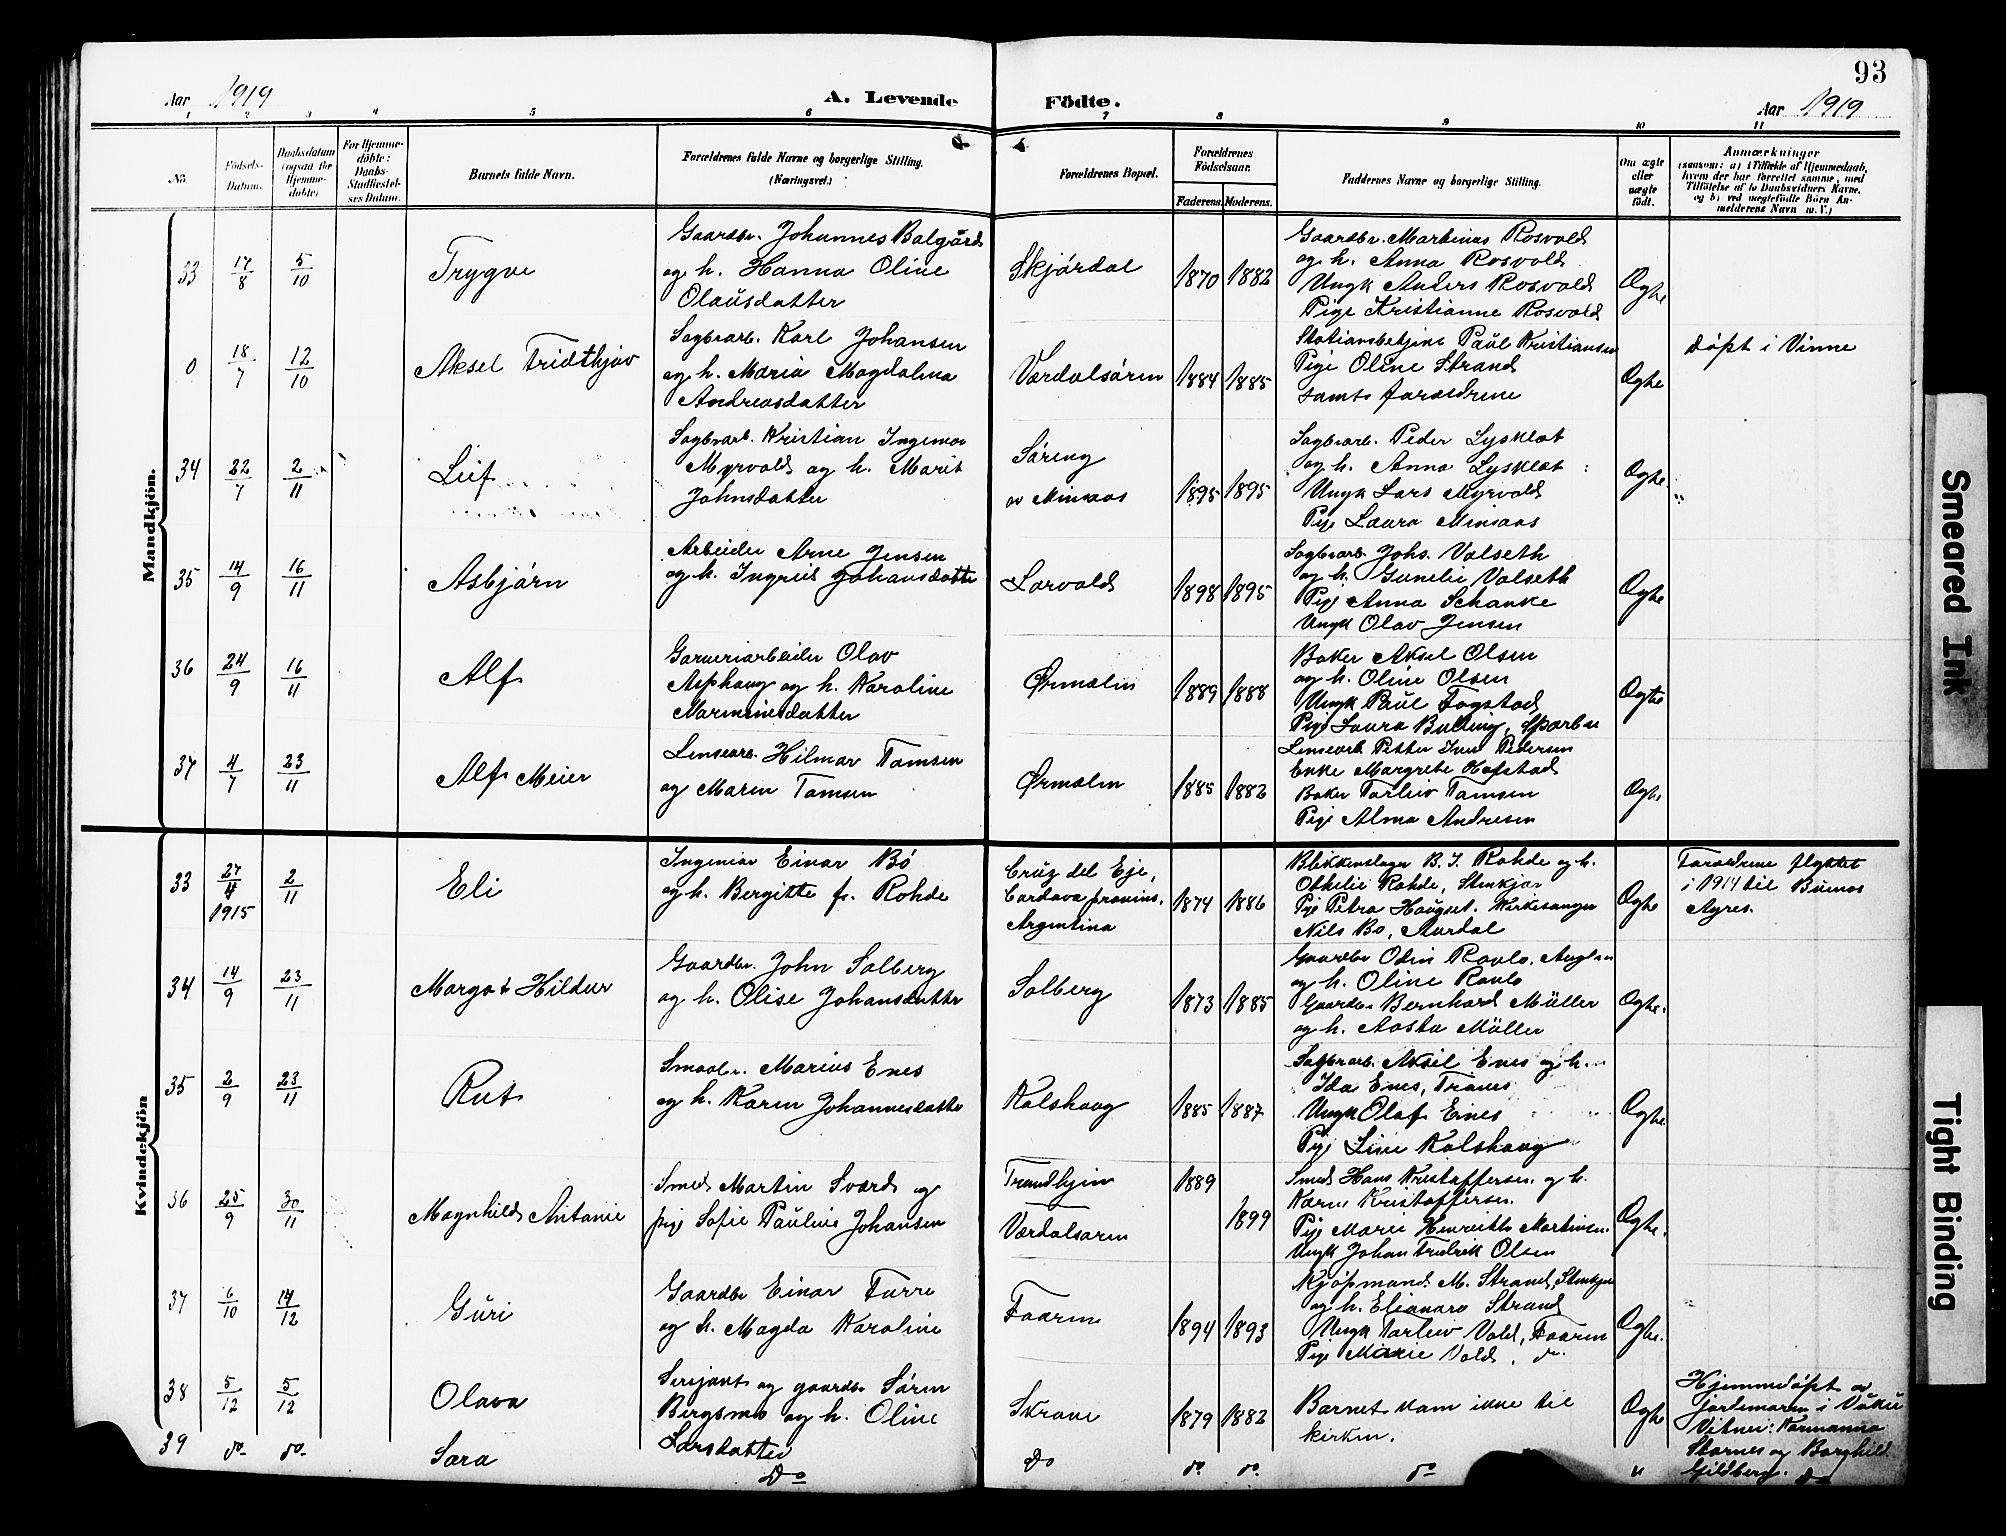 93
Aar 1919
A. Levende Födte.
Aar 1919
1 2 3 4 5 6 7 8 9 10 11
No.
Födsels-
Datum.
Daabsdatum
(ogsaa for
Hjemme-
döbte)
For Hjemme-
döbte:
Daabs-
Stadfæstel-
ses Datum.
Barnets fulde Navn.
Forældrenes fulde Navne og borgerlige Stilling.
(Næringsvei.)
Forældrenes Bopæl.
Forældrenes
Födselsaar.
Faderens. Moderens.
Faddernes Navne og borgerlige Stilling.
Om ægte
eller
uægte
födt.
Anmærkninger
(saasom: a) i Tilfælde af Hjemmedaab,
hvem der har forrettet samme, med
Tilföielse af to Daabsvidners Navne,
og b) ved uægtefödte Börn An-
melderens Navn m. V.)
Mandkjön.
33
17/8
5/10
Trygve
Gaardbr. Johannes Balgård
og h. Hanna Oline
Olausdatter
Skjördal
1870 1882
Gaardbr. Martinus Rosvold
og h. Anna Rosvold
Ungk Anders Rosvold
Pige Kristianne Rosvold
Ægte
0
18/7
12/10
Aksel Fridthjov
Sagbrarb. Karl Johansen
og h. Maria Magdalena
Andreasdatter
Værdalsören
1884 1885
Stationsbetjent Paul Kristiansen
Pige Oline Strand
samt forældrene
Ægte
döpt i Vinne
34
22/7
2/11
Leif
Sagbrarb. Kristian Ingemar
Myrvold og h. Marit
Johnsdatter
Söreng
av Minsaas
1895 1895
Sagbrarb. Peder Lysklæt
og h. Anna Lysklæt
Ungk Lars Myrvold
Pige Laura Minsaas
Ægte
35
14/9
16/11
Asbjörn
Arbeider Arne Jensen
og h. Ingrid Johansdatter
Lorvald
1898 1895
Sagbrarb. Johs. Valseth
og h. Gunelie Valseth
Pige Anna Schanke
Ungk Olav Jensen
Ægte
36
24/9
16/11
Alf
Garveriarbeider Olav
Asphaug og h. Karoline
Marminiesdatter
Ørmelen
1889 1888
Baker Aksel Olsen
og h. Oline Olsen
Ungk Paul Fogstad
Pige Laura Bulling, Sparbu
Ægte
37
4/7
23/11
Alf Meier
Lensearb. Hilmar Tomsen
og Maren Tomsen
Ørmelen
1885 1882
Lensearb Petter Iver Pedersen
Enke Margrete Hofstad
Baker Torleiv Tomsen
Pige Alma Andresen
Ægte
Kvindekjön
33
27/4
1915
2/11
Eli
Ingeniör Einar Bö
og h. Bergitte f. Rohde
Cruz del Eje,
Cordova provins,
Argentina
1874 1886
Blikkenslager B. J. Rohde og h.
Othelie Rohde, Stenkjær
Pige Petra Haugset. Kirkesanger
Nils Bö, Aurdal
Ægte
Forældrene flyttet
i 1914 til Buenos
Ayres.
34
14/9
23/11
Margot Hildur
Gaardbr. John Solberg
og h. Olise Johansdatter
Solberg
1873 1885
Gaardbr Odin Ravlo,
og h. Oline Ravlo
Gaardbr Bernhard Müller
og h. Aasta Müller
Ægte.
35
2/9
23/11
Rut
Smaabr. Marius Enes
og h. Karen Johannesdatter
Kolshaug
1885 1887
Sagbrarb. Aksel Enes og h.
Ida Enes, Trones
Ungk Olaf Eines
Pige Line Kolshaug
Ægte.
36
25/9
30/11
Magnhild Antonie
Smed Martin Sværd og
pige Sofie Pauline Johansen
Trondhjem
Værdalsören
1889
1899
Smed Hans Kristoffersen og h.
Karen Kristoffersen
Pige Marie Henriette Martinsen
Ungk Johan Fredrik Olsen
Ægte.
37
6/10
14/12
Guri
Gaardbr Einar Færre
og h. Magda Karoline
Faaren
1894 1893
Kjöpmand M. Strand, Stenkjær
og h. Elianara Strand
Ungk Torleiv Vold, Faaren
Pige Marie Vold, do
Ægte.
38
5/12
5/12
Olava
Sersjant og gaardbr Sören
Bergsmo og h. Oline
Larsdatter
Skrove
1879 1882
Barnet kom ikke til
kirken.
Ægte
Hjemmedöpt av
jordemoren i Vuku
Vitner: Normanna
Stornes og Borghild
Gildberg.
39
do
do
Sara
Do
Do
do
do
do
"
do
Smeared Ink
Tight Binding